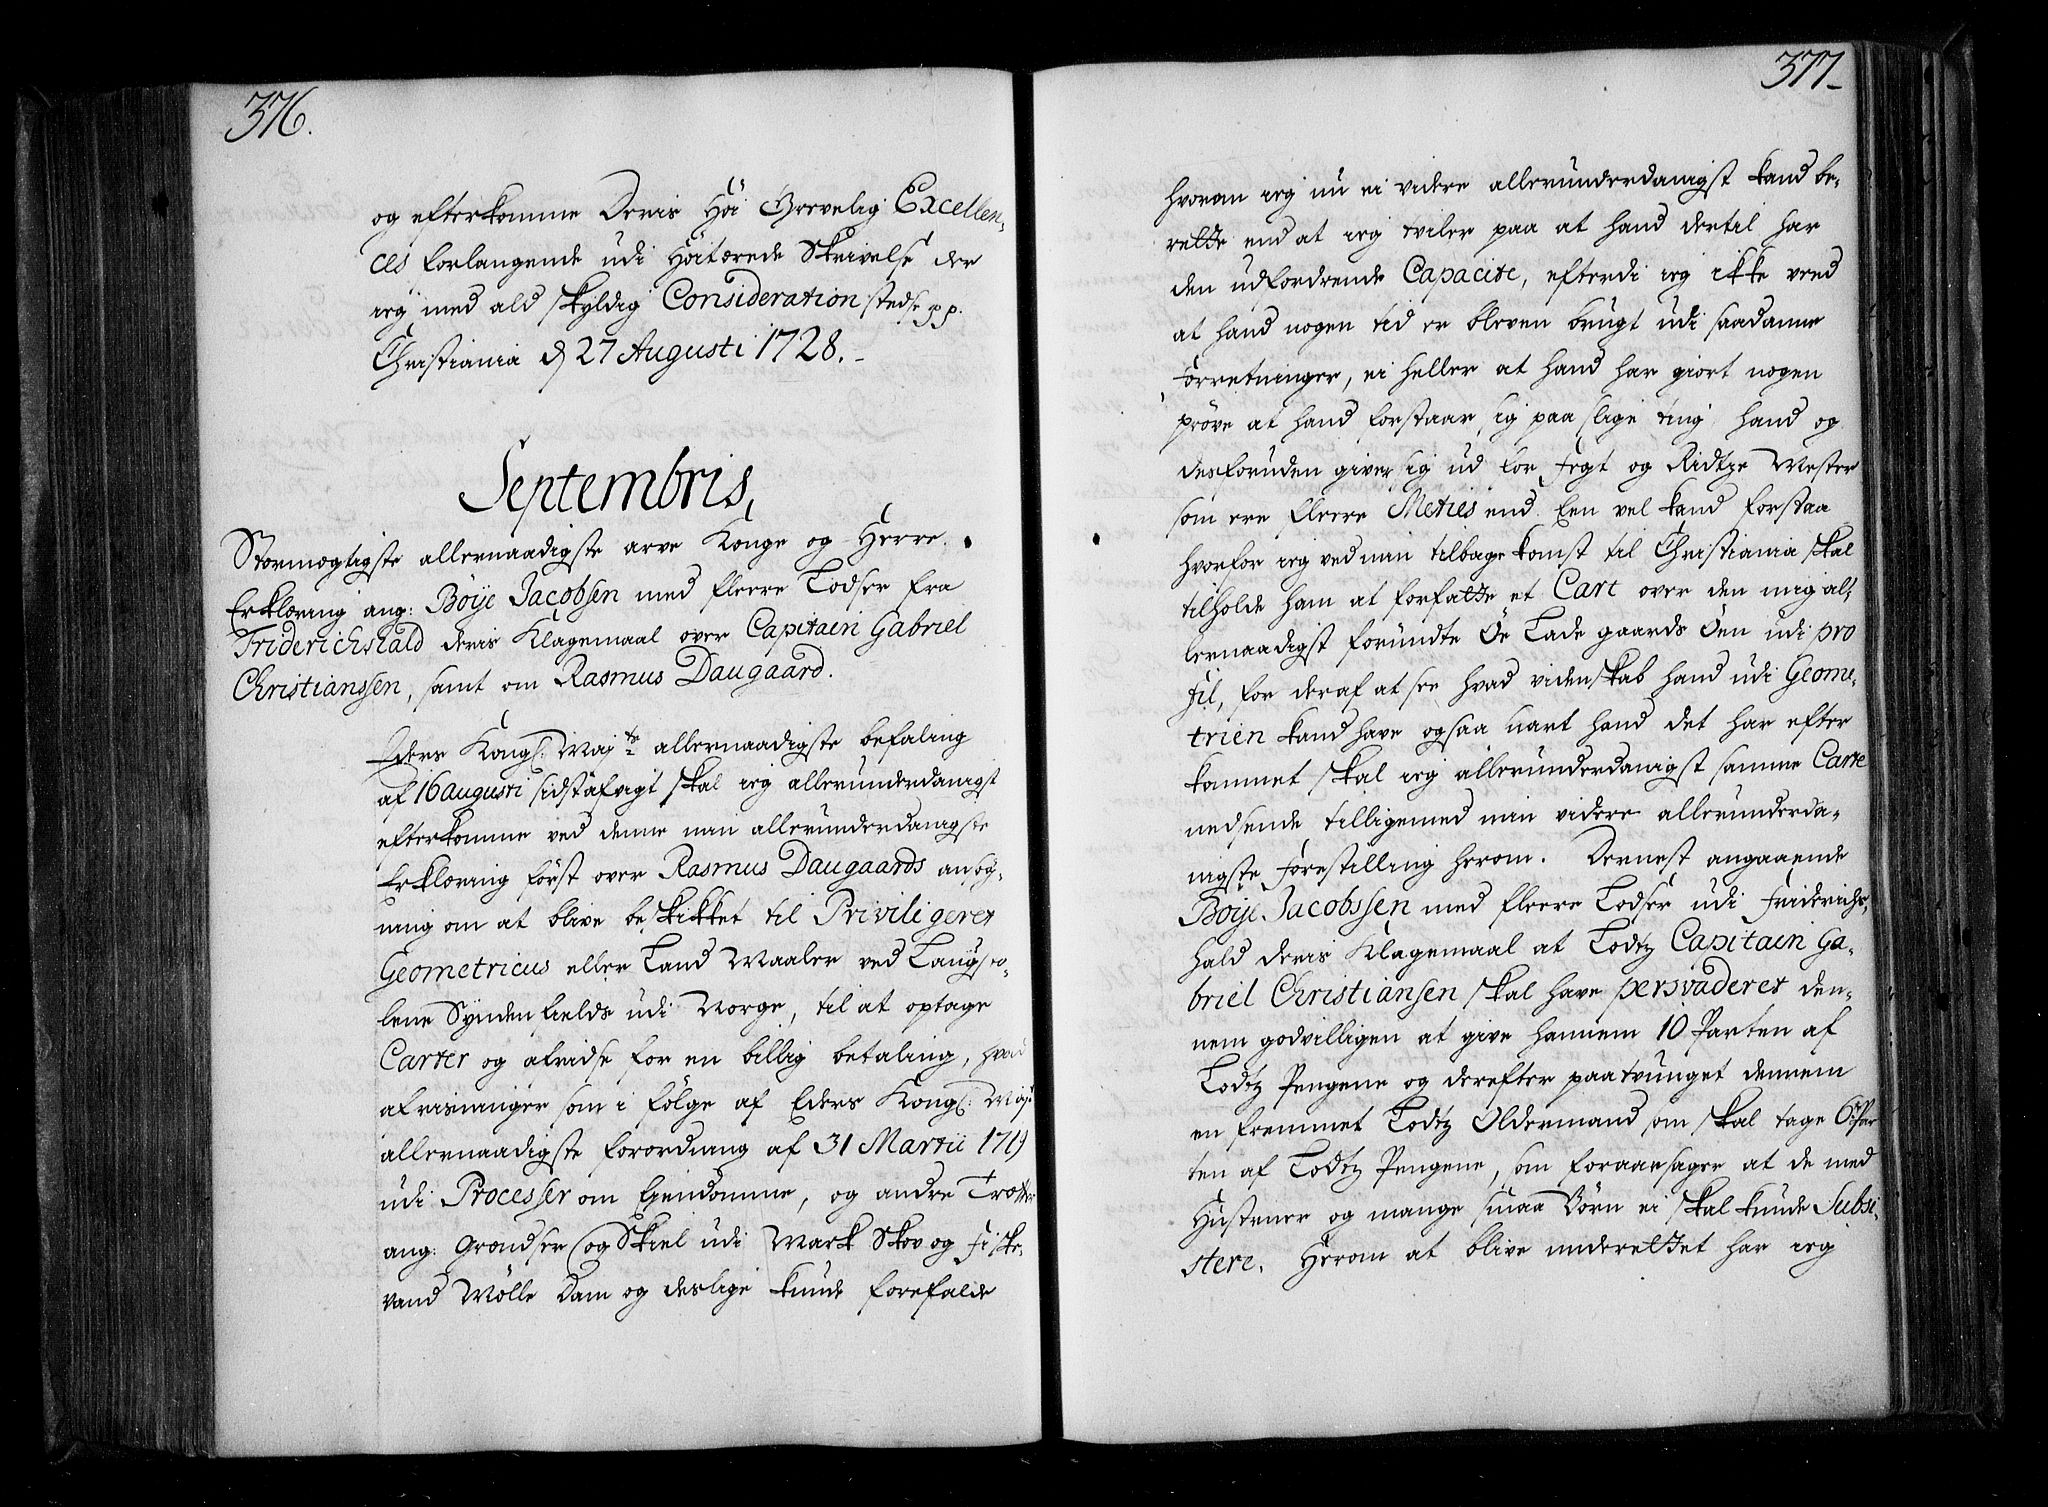 376.
og efterkomme Deris Høi Grevelig Excellen-
ces forlangende udi Høitærede Skrivelse der
ieg med ald skyldig Consideration stedse pp.
Christiania d 27 Augusti 1728.-
Septembris,
Stormægtigste allernaadigste arve Konge og Herre.
Erklæring ang: Böije Jacobsen med fleere Lodser fra
Friderichshald deris Klagemaal over Capitain Gabriel
Christianssen, samt om Rasmus Daugaard.
Eders Kongl: May:ts allernaadigste befaling
af 16 augusti sidstafvigt skal ieg allerunderdanigst
efterkomme ved denne min allerunderdanigste
Erklæring først over Rasmus Daugaards ansøg-
ning om at blive beskikket til Priviligeret
Geometricus eller Land Maaler ved Laugsto-
lene Syndenfields udi Norge, til at optage
Carter og afridse for en billig betaling, hvad
afrisninger som i følge af Eders Kongl: May:
allernaadigste forordning af 31 Martii 1719
udi Processer om Eiendomme, og andre Trætter
ang: Grændser og Skiel udi Mark Skov og Fiske-
vand Mølle Dam og deslige kunde forefalde
377-
hvoran ieg nu ei videre allerunderdanigst kand be-
rette end at ieg tviler paa at hand dertil har
den udfordrende Capacite, efterdi ieg ikke veed
at hand nogen tid er bleven brugt udi saadanne
Forretninger, ei heller at hand har giort nogen
prøve at hand forstaar sig paa slige ting hand og
desforuden giver sig ud for Fegt og Ridtze Mester
som ere fleere Meties end Een vel kand forstaa
hvorfor ieg ved min tilbagekomst til Christiania skal
tilholde ham at forfatte et Cart over den mig al-
lernaadigst forundte Øe Ladegaards Øen udi pro
fil, for deraf at see hvad videnskab hand udi Geome-
trien kand have ogsaa snart hand det har efter
kommet skal ieg allerunderdanigst samme Carte
nedsende tilligemed min videre allerunderda-
nigste Forestilling herom. Dernest angaaende
Böije Jacobssen med fleere Lodser udi Friderichs-
hald deris Klagemaal at Lodtz Capitain Ga-
briel Christiansen skal have persvaderet den-
nem godvilligen at give hannem 10 Parten af
Lodtz Pengene og derefter paatvunget dennem
en fremmet Lodtz Oldermand som skal tage 6: Par
ten af Lodtz Pengene, som foraarsager at de med
Hustruer og mange smaa Børn ei skal kunde Subsi-
stere. Herom at blive underrettet har ieg